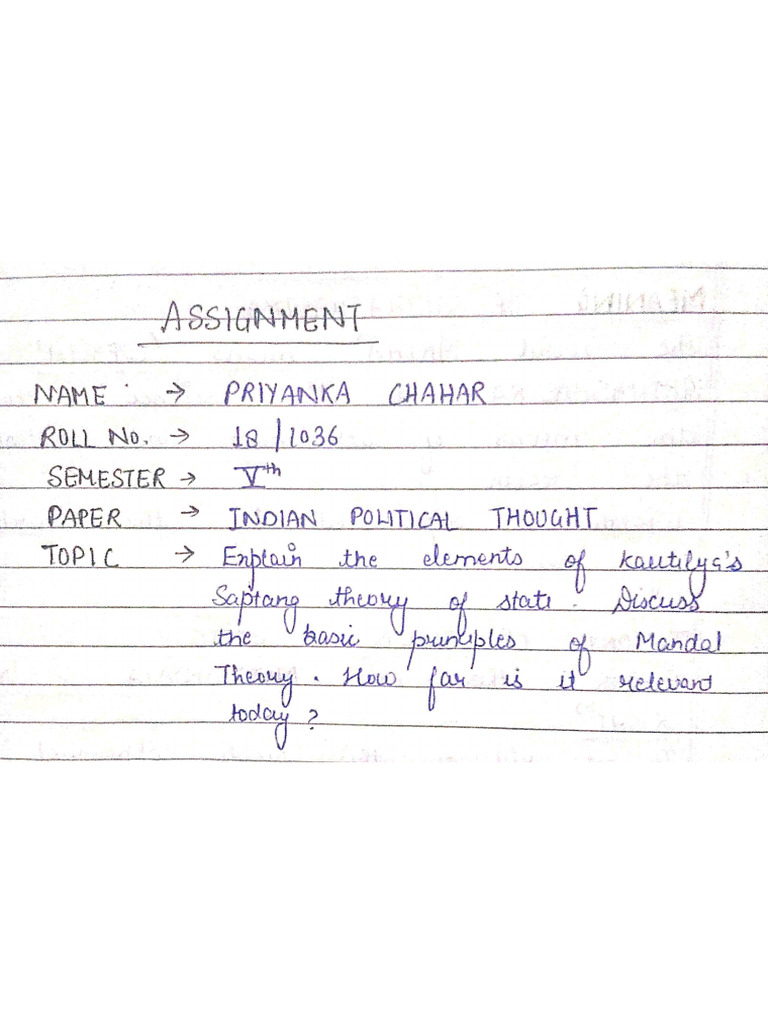 ASSIGNMENT
NAME : → PRIYANKA CHAHAR
ROLL NO. → 18/1036
SEMESTER → Vth
PAPER → INDIAN POLITICAL THOUGHT
TOPIC → Explain the elements of Kautilya's
Saptang theory of state. Discuss
the basic principles of Mandal
Theory. How far is it relevant
today?